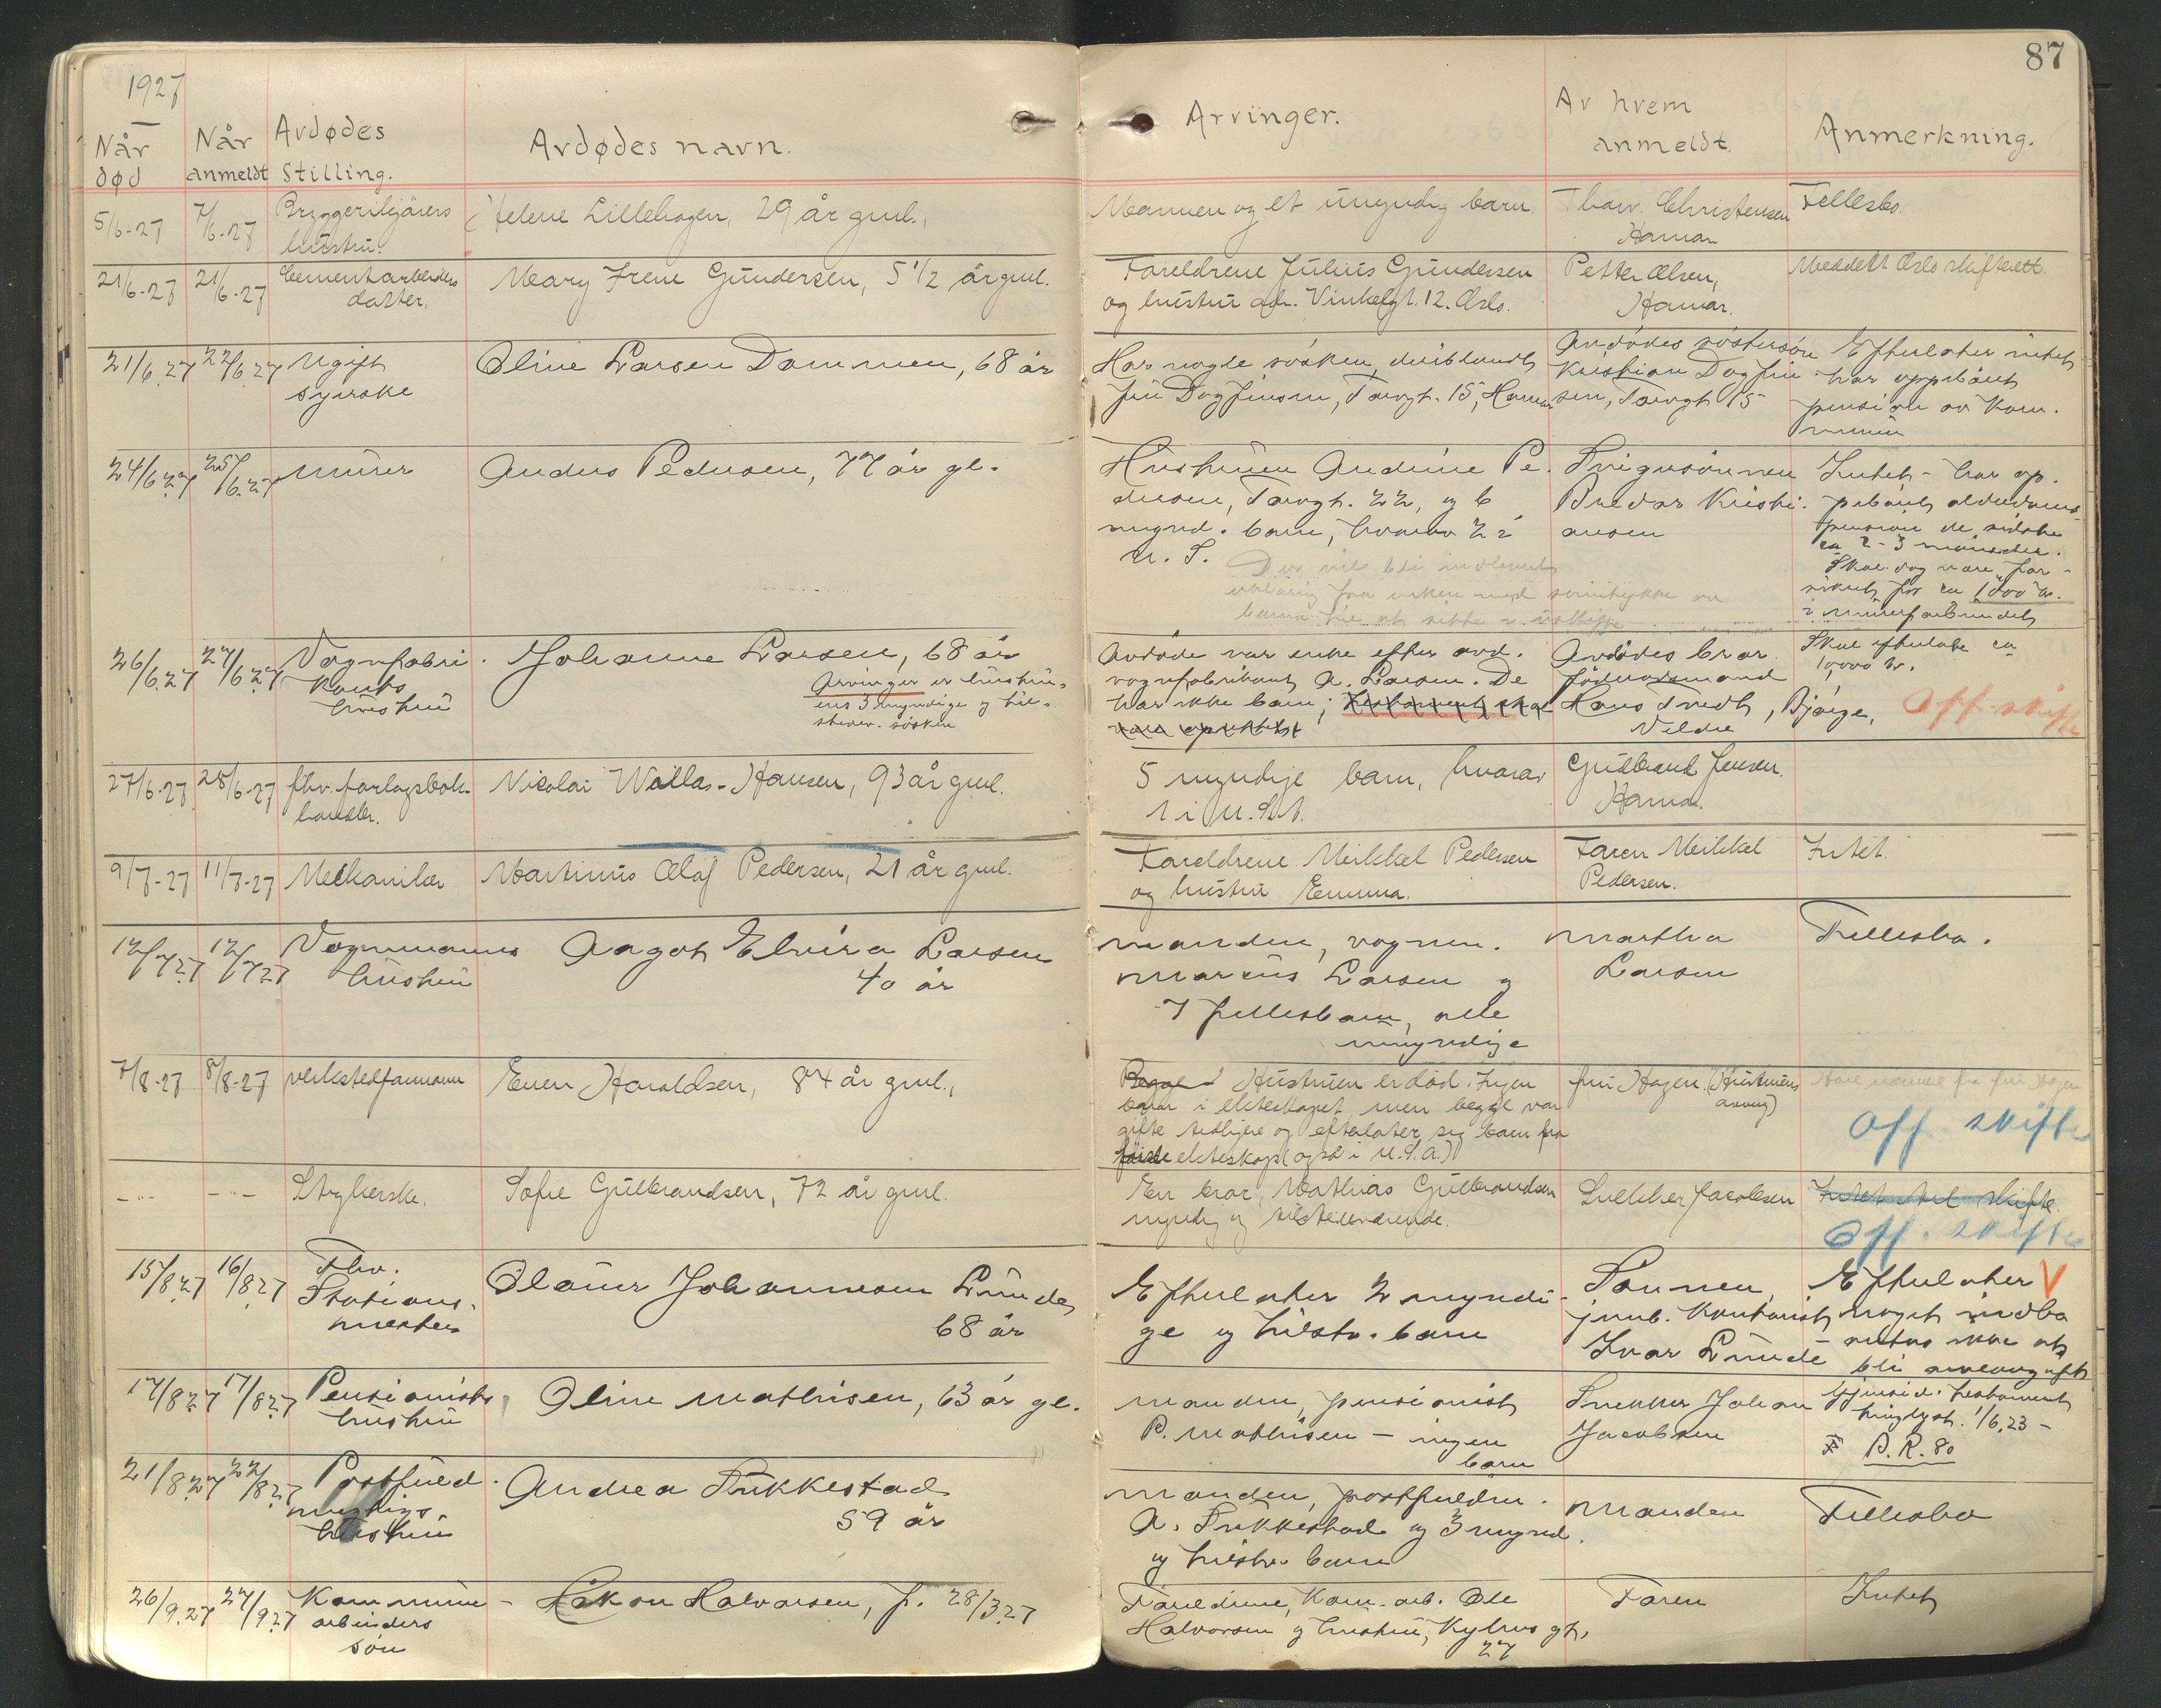 1927
87
Når død
Når anmeldt
Avdødes Stilling.
Avdødes navn.
Arvinger.
Av hvem anmeldt.
Anmerkning.
5/6-27 7/6-27 Bryggerikjørers hustru. Helene Lillehagen, 29 år gml.,
Mannen og et umyndig barn.
Thorv. Christensen
Hamar
Fellesbo.
21/6-27 21/6-27 Cementarbeiders datter. Mary Irene Gundersen, 5 1/2 år gml.
Foreldrene Julius Gundersen
og hustru adr. Vinkelgt. 12. Oslo.
Petter Olsen,
Hamar.
Meddelt Oslo skifterett.
21/6.27 22/6.27 Ugift syerske Oline Larsen Dammen, 68 år
Har nogle søsken, deriblandt
fru Dagfinsen, Torvgt. 15, Hamar
Avdødes søstersøn
Kristian Dagfin
sen, Torvgt 15
Efterlater intet
har oppebåret
pension av kom.
munen
24/6.27 25/6.27 murer Anders Pedersen, 77 år gl.
Hustruen Andrine Pe.
dersen, Torvgt. 22, og 6
mynd. barn, hvorav 2 i
U. S.
Der vil bli innlevert
erklæring fra enken med samtykke av
barna til at sitte i uskifte
Svigersønnen
Bredar Kristi.
ansen
Intet - har op.
pebåret alderdoms-
pension de sidste
ca 2-3 måneder.
Skal dog være for-
sikret for ca 1000 kr.
i murerforbundet
26/6.27 27/6.27 Vognfabri.
kants
hustru
Johanne Larsen, 68 år
Arvinger er hustru-
ens 3 myndige og til-
stedev. søsken
Avdøde var enke efter avd.
vognfabrikant A. Larsen. De
har ikke barn; testament skal
være oprettet
Avdødes bror
Hans Tvedt, Bjørge,
Veldre
Skal efterlate ca
10,000 kr.
Off. skifte
27/6-27 28/6-27 fhv. forlagsbok-
handler.
Nicolai Wallas-Hansen, 93 år gml.
5 myndige barn, hvorav
1 i U.S.A.
Gudbrand Jensen.
Hamar.
9/7-27 11/7-27 Mekaniker Martinus Olaf Pedersen, 21 år gml.
Foreldrene Mikkel Pedersen
og hustru Emma.
Faren Mikkel
Pedersen.
Intet.
12/7.27 12/7.27 Vognmanns
hustru
Aagot Elvira Larsen
40 år
manden, vognm.
Marcus Larsen og
7 fellesbarn, alle
umyndige
Martha
Larsen
Fellesbo.
7/8-27 8/8-27 verkstedformann Even Haraldsen, 84 år gml.,
Begge Hustruen er død. Ingen
barn i ekteskapet, men begge var
gifte tidligere og efterlater sig barn fra
første ekteskap (også i U.S.A.)
fru Hagen. (Hustruens
arving)
Off. skifte
- " - - " - Strykerske. Sofie Gulbrandsen, 72 år gml.
En bror, Mathias Gulbrandsen
myndig og tilstedeværende.
Snekker Jacobsen
Intet til skifte.
Off. skifte
15/8.27 16/8.27 Fhv.
Stations.
mester
Olaus Johannesen Lunde,
68 år
Efterlater 2 myndi-
ge og tilstv. barn
Sønnen,
jernb. kontorist
Ivar Lunde
Efterlater V
noget indbo
antas ikke at
bli arveavgift
17/8.27 17/8.27 Pensionists
hustru
Oline Mathisen, 63 år gl.
Manden, pensionist
P. Mathisen - ingen
barn
Snekker Johan
Jacobsen
Gjensid. testament
tinglyst. 1/6.23 -
F B. R. 80
21/8.27 22/8.27 Postfuld.
mektigs
hustru
Andrea Sukkestad
59 år
Manden, postfuldm.
A. Sukkestad og 3 mynd.
og tilstv. barn
Manden
Fellesbo
26/9.27 27/9.27 Kommune-
arbeiders
søn
Håkon Halvorsen, f. 28/3.27
Foreldrene, Kom. arb. Ole
Halvorsen og hustru, Kyhus gt.
27
Faren
Intet